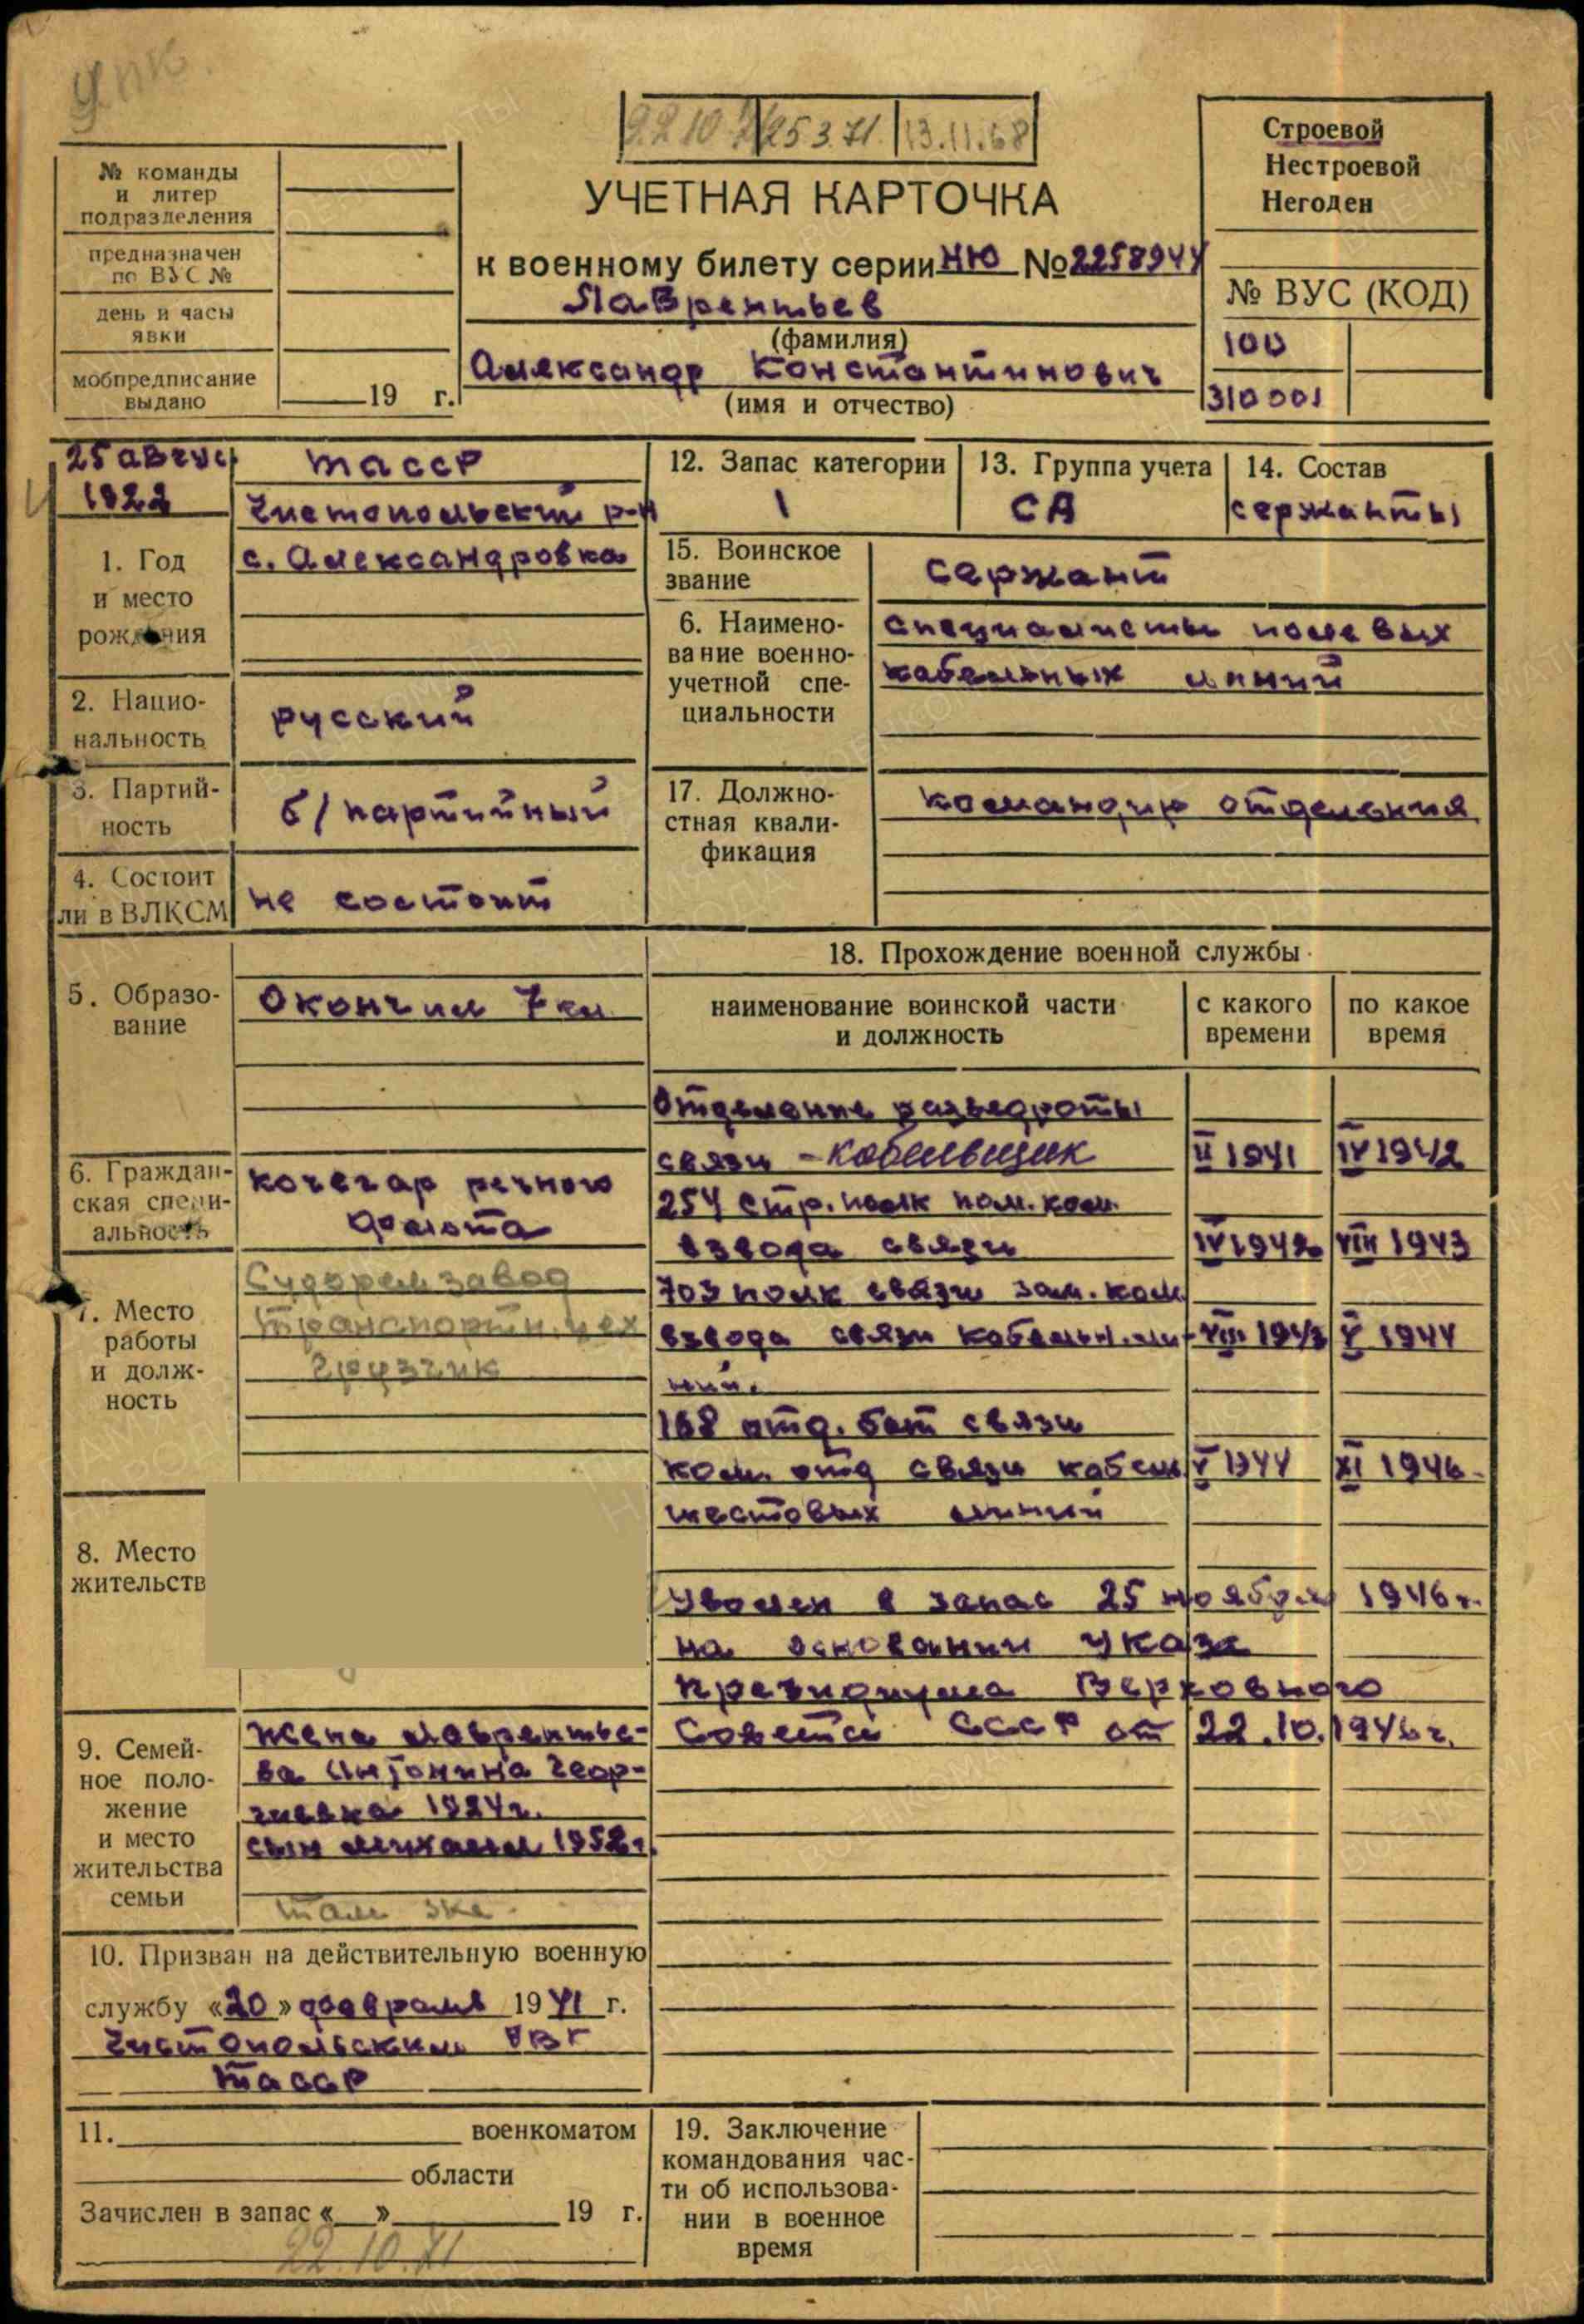 упк.
22.10.71 25.3.71. 13.11.68
Строевой
Нестроевой
Негоден
№ команды
и литер
подразделения
предназначен
по ВУС №
день и часы
явки
мобпредписание
выдано
19 г.
УЧЕТНАЯ КАРТОЧКА
к военному билету серии НЮ №2258944
Лаврентьев
(фамилия)
Александр Константинович
(имя и отчество)
№ ВУС (КОД)
100
310001
25 август
1922
ТАССР
Чистопольский р-н
с. Александровка
1. Год
и место
рождения
2. Нацио-
нальность
русский
3. Партий-
ность
б/партийный
4. Состоит
ли в ВЛКСМ
не состоит
12. Запас категории
1
13. Группа учета
СА
14. Состав
сержанты
15. Воинское
звание
сержант
6. Наимено-
вание военно-
учетной спе-
циальности
специалисты полевых
кабельных линий
17. Должно-
стная квали-
фикация
командир отделения
5. Образо-
вание
Окончил 7 кл
6. Граждан-
ская специ-
альность
кочегар речного
флота
7. Место
работы
и долж-
ность
Судорем завод
транспортн. цех
грузчик
8. Место
жительств
9. Семей-
ное поло-
жение
и место
жительства
семьи
жена Лаврентье-
ва Антонина Геор-
гиевна 1924г.
сын Михаил 1952г.
там же.
10. Призван на действительную военную
службу «20» февраля 1941 г.
Чистопольским РВК
ТАССР
11. военкоматом
области
Зачислен в запас « » 19 г.
22.10.71
18. Прохождение военной службы
наименование воинской части
и должность
с какого
времени
по какое
время
Отделение разведроты
связи - кабельщик II 1941 IV 1942
254 стр. полк пом. ком.
взвода связи IV 1942 VIII 1943
703 полк связи зам. ком
взвода связи кабельн. ли- VIII 1943 V 1944
ний.
168 отд. бат связи
ком. отд связи кабель V 1944 XI 1946
шестовых линий
Уволен в запас 25 ноября 1946г.
на основании указа
президиума Верховного
Совета СССР от 22.10.1946г.
19. Заключение
командования час-
ти об использова-
нии в военное
время